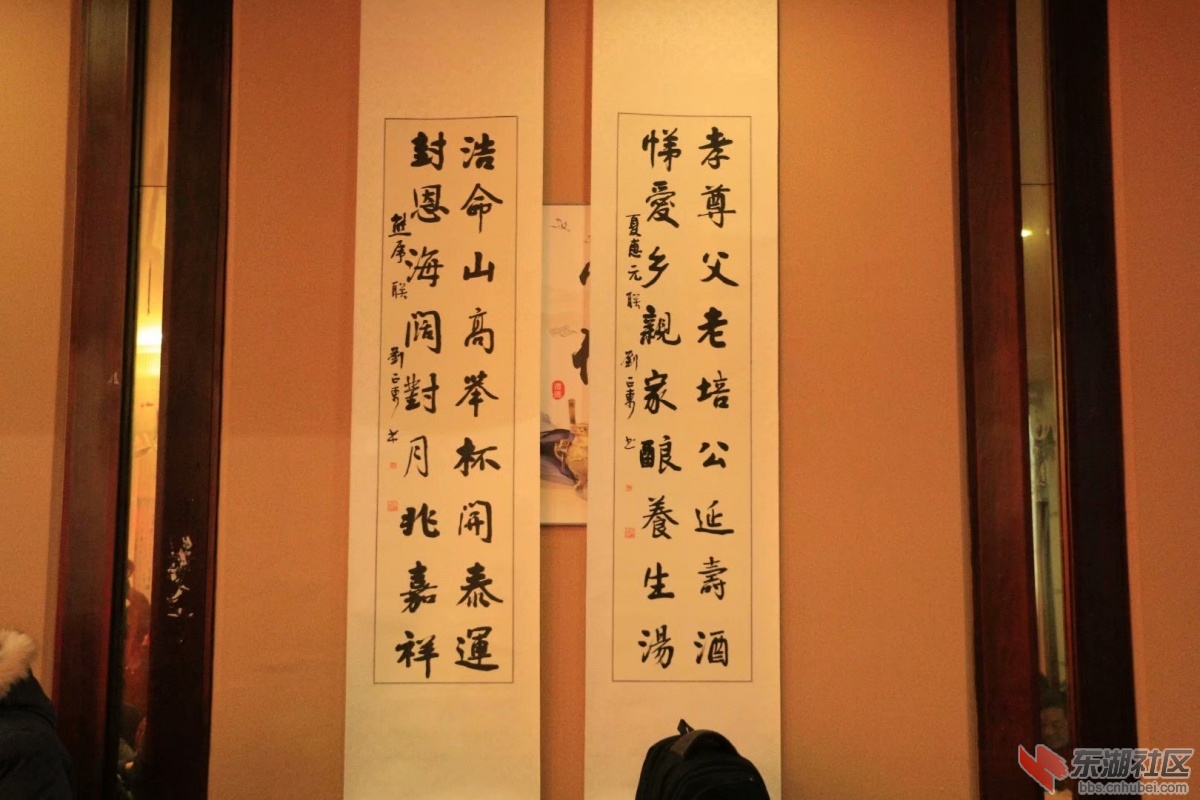 孝尊父老培公延壽酒
悌愛乡親家酿養生湯
夏惠元联 劉正東 书
浩命山高举杯開泰運
封恩海阔對月兆嘉祥
熊虎联 劉正東 书
东湖社区
bbs.cnhubei.com